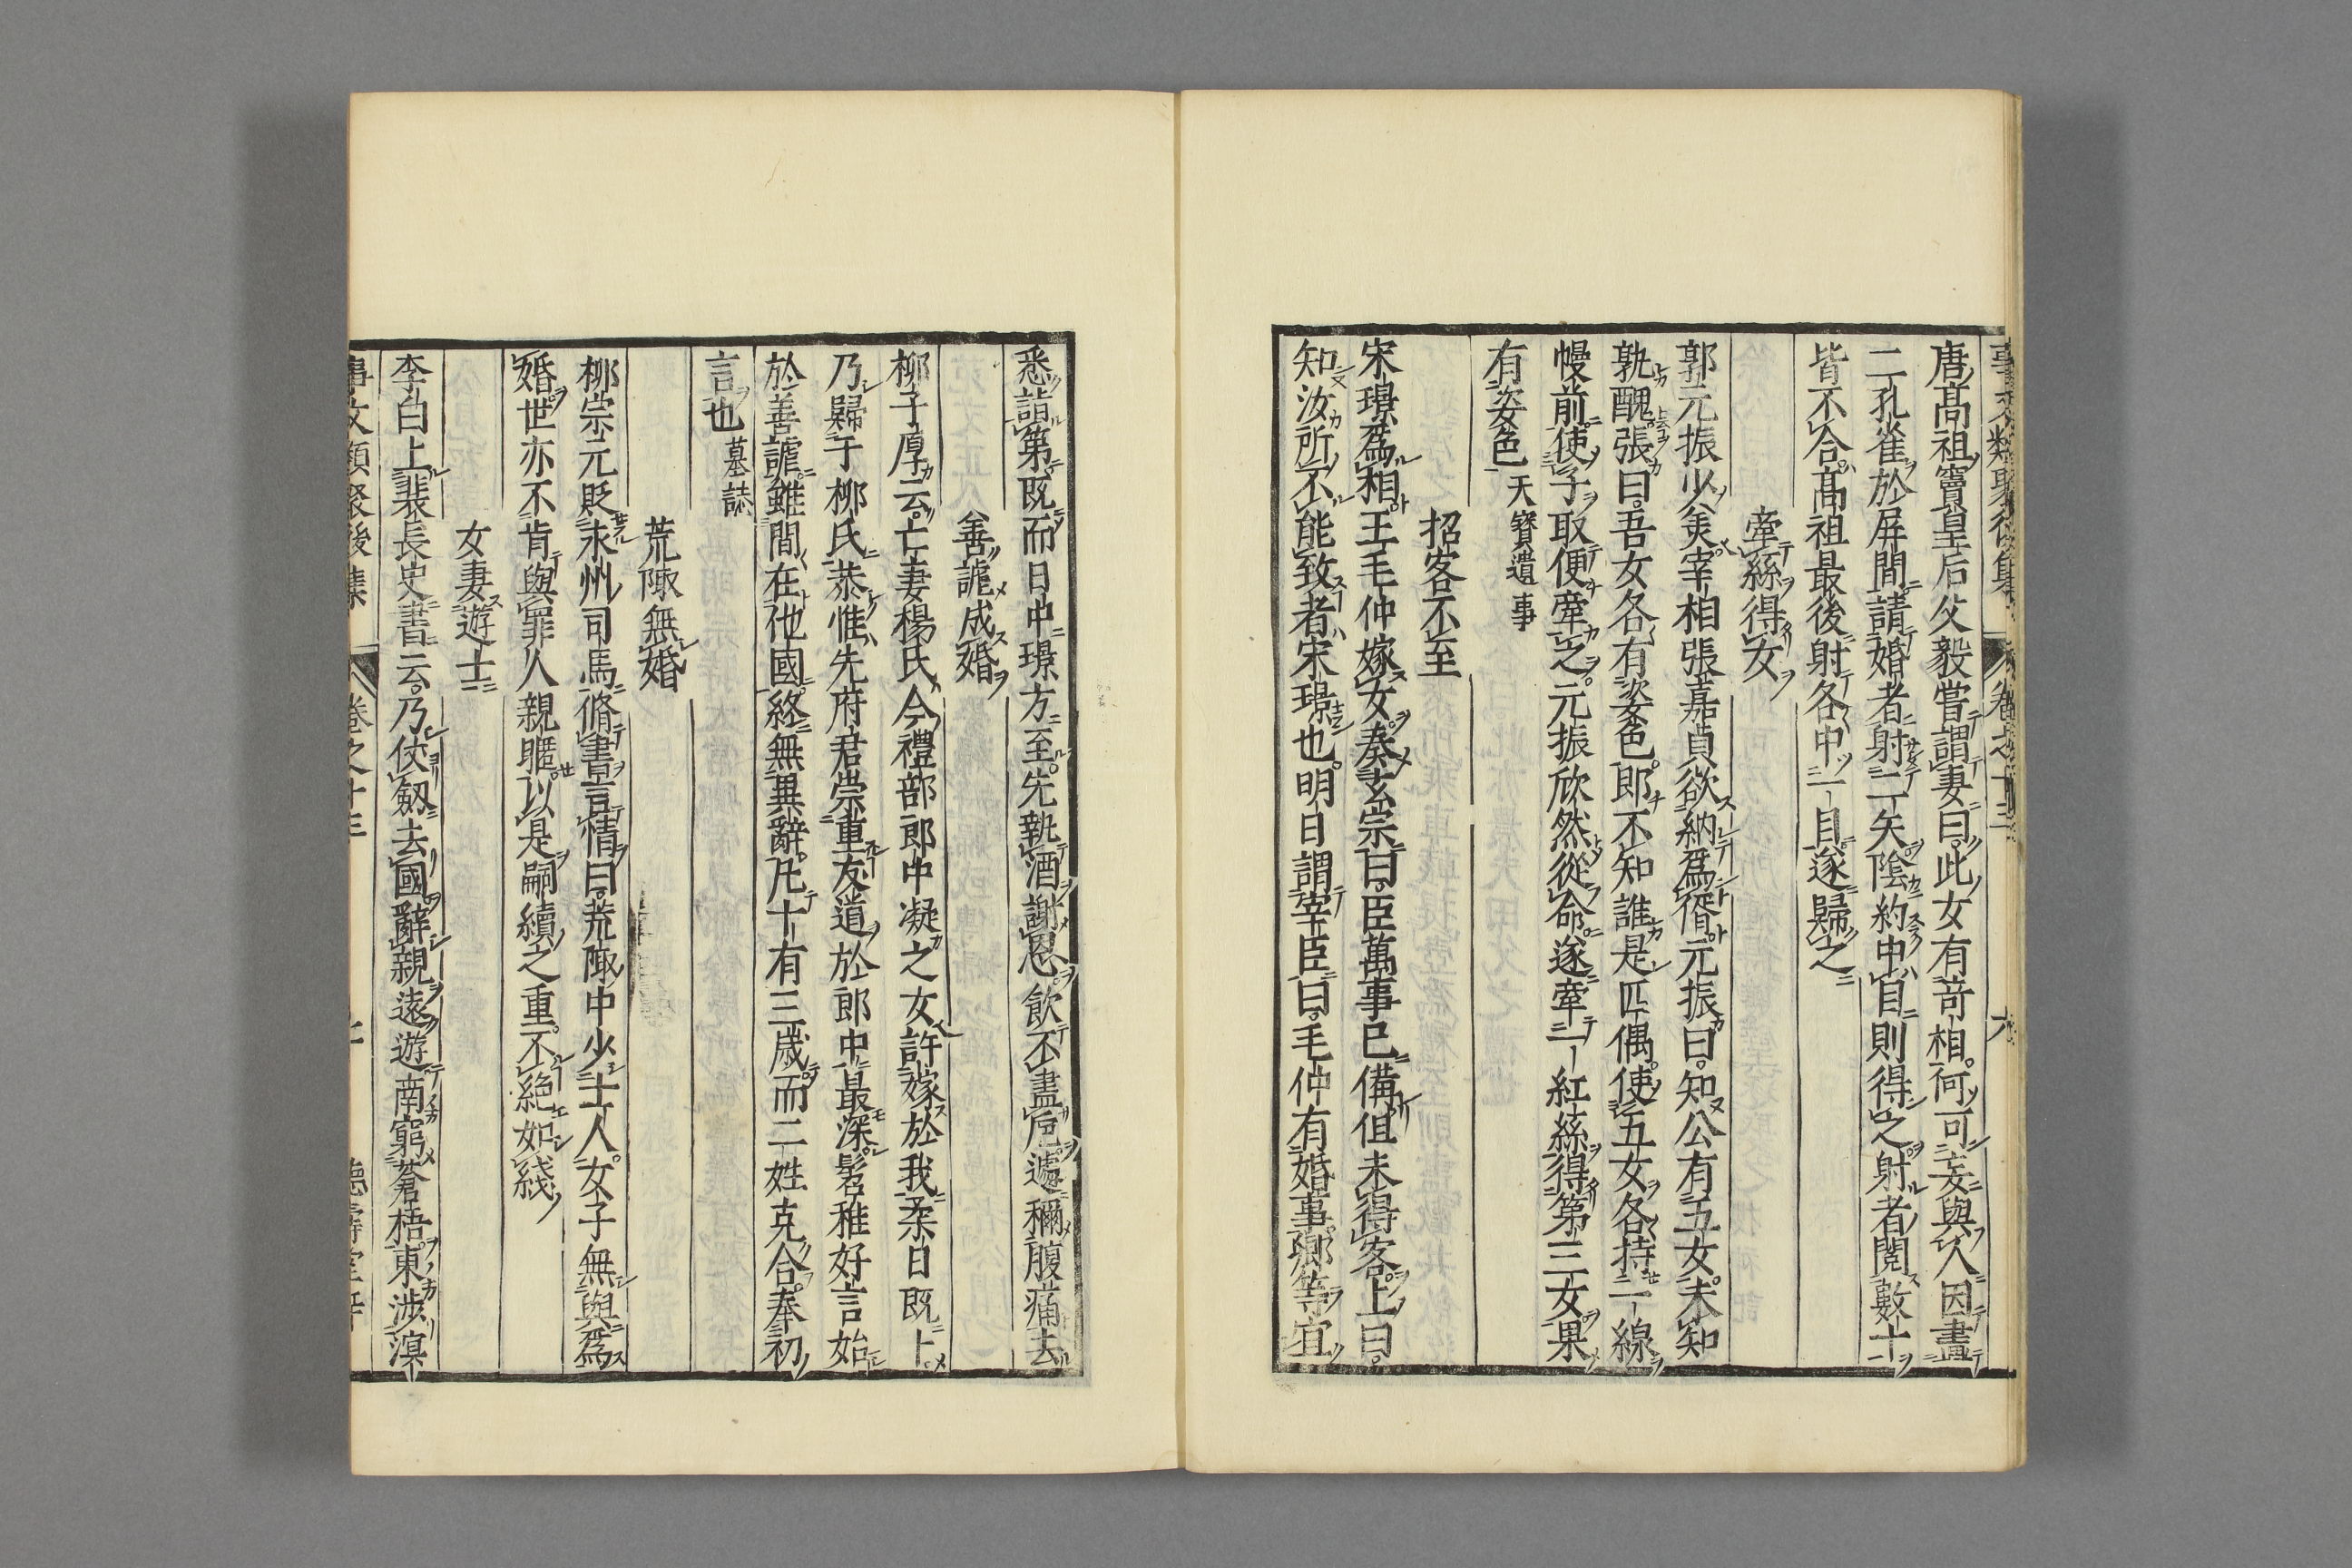 事文類聚後集 卷之十三 六
唐高祖竇皇后父毅嘗謂妻曰此女有奇相何可妄與人因畫
二孔雀於屏間請婚者射二矢陰約中目則得之射者閱數十
皆不合高祖最後射各中一目遂歸之
牽絲得女
郭元振少美宰相張嘉貞欲納爲僃元振曰知公有五女未知
孰醜張曰吾女各有姿色郎不知誰是匹偶使五女各持一線
幔前使子取便牽之元振欣然從命遂牽一紅絲得第三女果
有姿色天寶遺事
招客不至
宋璟爲相王毛仲嫁女奏玄宗曰臣萬事已備但未得客上曰
知汝所不能致者宋璟也明日謂宰臣曰毛仲有婚事卿等宜
悉詣第既而日中璟方至先執酒謝恩飲不盡巵遽稱腹痛去
善謔成婚
柳子厚云亡妻楊氏今禮部郎中凝之女許嫁於我柔日既卜
乃歸于柳氏恭惟先府君崇重友道於郎中最深髫稚好言始
於善謔雖間在他國終無異辭凡十有三歲而二姓克合奉初
言也墓誌
荒陬無婚
柳宗元貶永州司馬脩書言情曰荒陬中少士人女子無與爲
婚世亦不肯與罪人親暱以是嗣續之重不絶如綫
女妻遊士
李白上裴長史書云乃仗劔去國辭親遠遊南窮蒼梧東涉溟
事文類聚後集 卷之十三